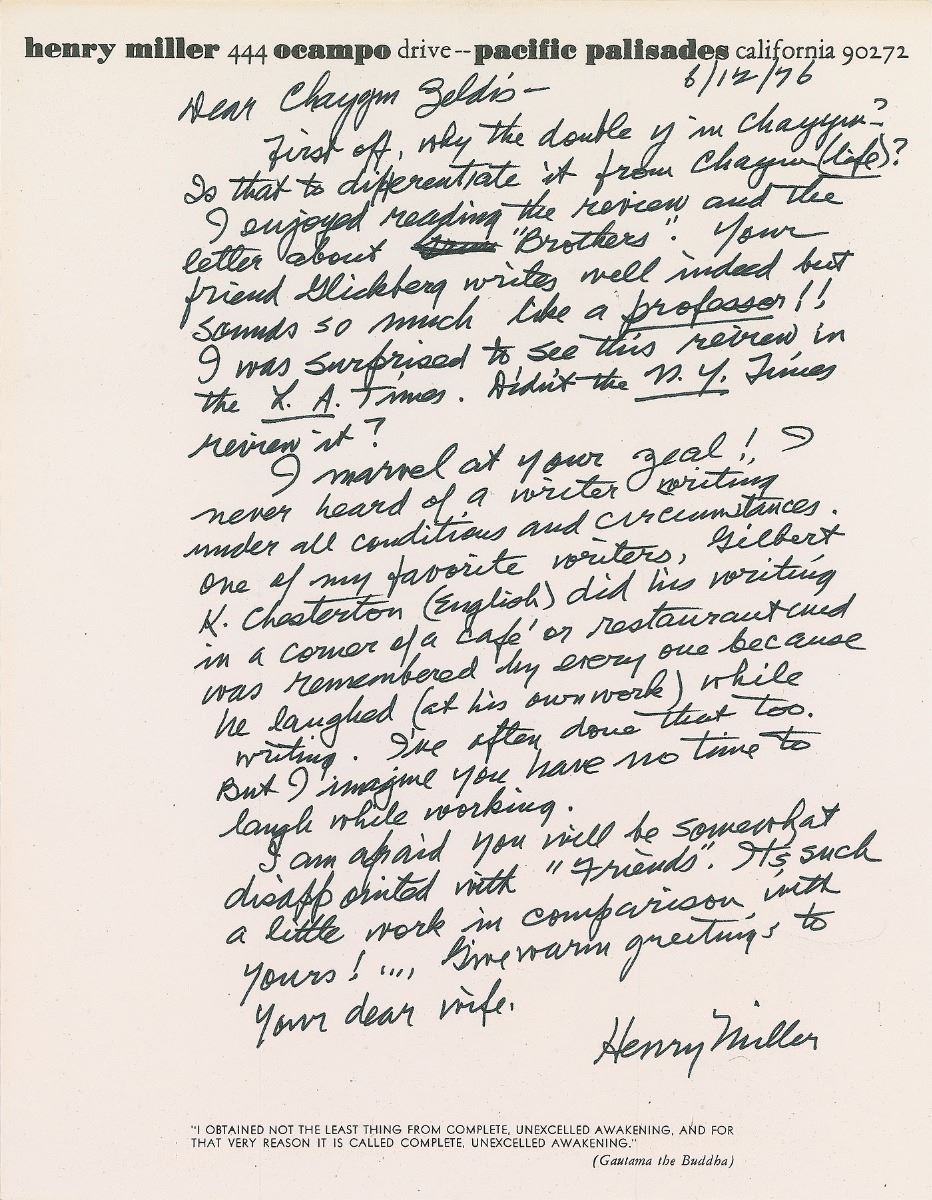 henry miller 444 ocampo drive -- pacific palisades california 90272
6/12/76
Dear Chayym Zeldis -
First off, why the double y in Chayym?
Is that to differentiate it from Chayim (life)?
I enjoyed reading the review and the
letter about "Brothers". Your
friend Glicksberg writes well indeed but
sounds so much like a professor!!
I was surprised to see this review in
the L. A. Times. Didn't the N. Y. Times
review it?
I marvel at your zeal! I
never heard of a writer writing
under all conditions and circumstances.
One of my favorite writers, Gilbert
K. Chesterton (English) did his writing
in a corner of a café or restaurant and
was remembered by every one because
he laughed (at his own work) while
writing. I've often done that too.
But I imagine you have no time to
laugh while working.
I am afraid you will be somewhat
disappointed with "Friends". It's such
a little work in comparison with
yours! .... Give warm greetings to
your dear wife.
Henry Miller
"I OBTAINED NOT THE LEAST THING FROM COMPLETE, UNEXCELLED AWAKENING, AND FOR
THAT VERY REASON IT IS CALLED COMPLETE, UNEXCELLED AWAKENING."
(Gautama the Buddha)